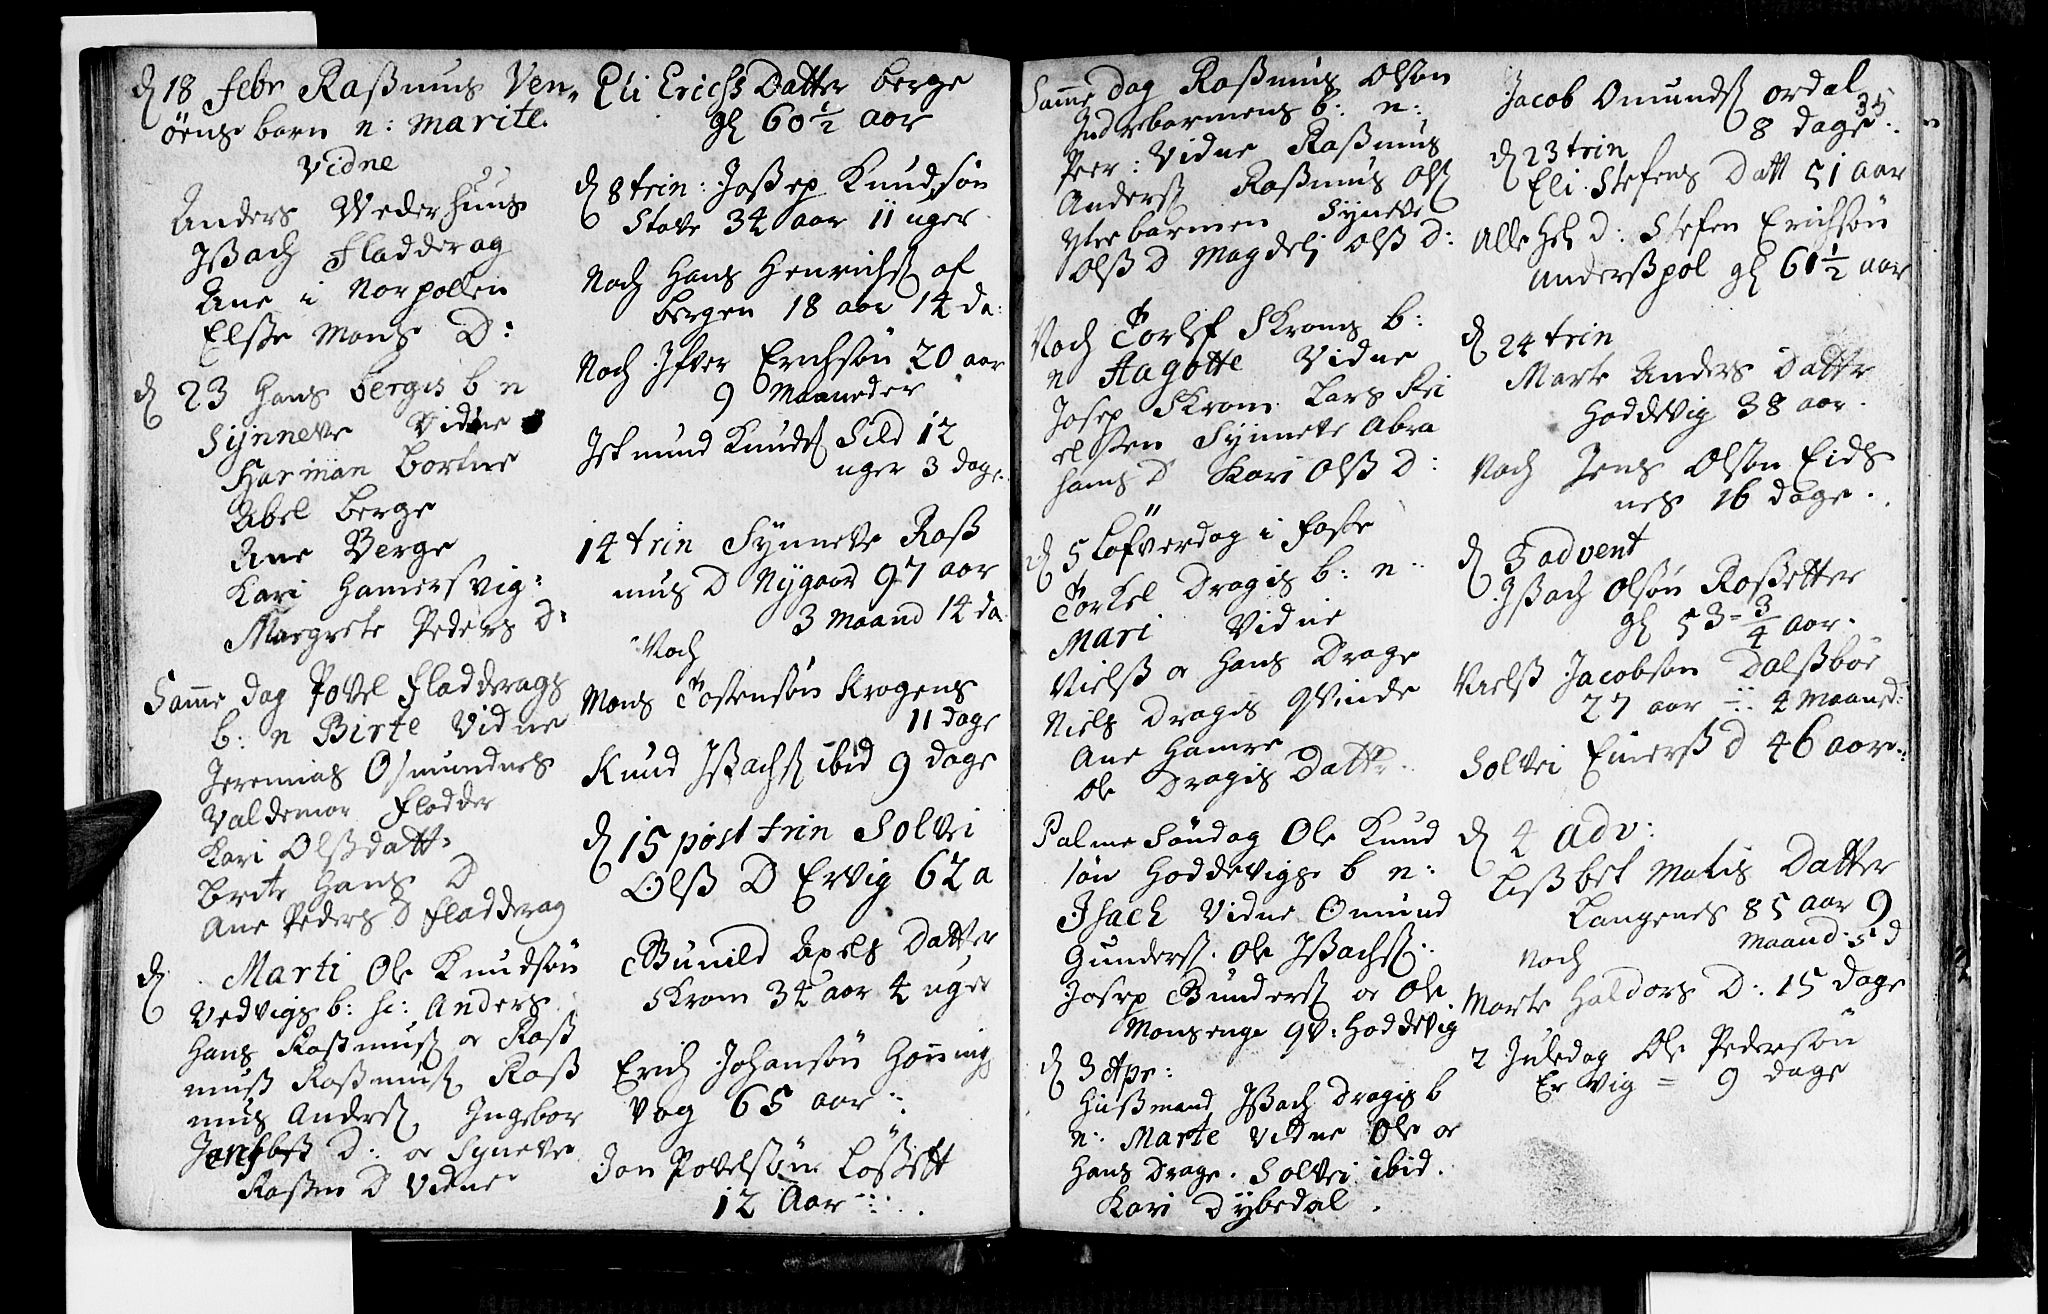 d 18 febr Rasmus Ven-
öens barn n: Marite.
Vidne
Anders Wederhuus
Isach Fladderag
Ane i Norpollen
Elsse Mons D:
d 23 Hans Bergis b n
Synneve Vidne
Harman Bortne
Abel Berge
Ane Berge
Kari Hamersvig:
Margrete Peders D:
Samme dag Povel Fladderags
b: n Birte Vidne
Jeremias Osmundnes
Valdemar Fladder
Kari Olssdatt:
Brite Hans D
Ane Peders D Fladderag
d Marti Ole Knudsön
Vedvigs b: h: Anders
Hans Rasmuss oc Rass
muss Rasmuss Rass
mus Anderss Ingebor
D: oc Syneve
Rasmu D Vidner
Eli Erichs Datter Berge
gl 60 1/2 aar
d 8 trin: Jossep Knudsön
Stave 34 aar 11 uger
Noch Hans Henrichss af
Bergen 18 aar 14 da:
Noch Ifver Erichsön 20 aar
9 Maaneder
Knudss Sild 12
uger 3 dage.
14 trin Synneve Rass
mus D Nygaar 97 aar
3 Maand 14 da
Noch
Mons Tostensön Krogens
11 dage
Knud Isachss ibid 9 dage
d 15 post trin Solvi
Olss D Ervig 62 a
Gunild Axels Datter
Skram 34 aar 4 uger
Erich Johansön Honnings
vog 65 aar
Jon Povelsön Lösett
12 Aar
Samme dag Rasmus Olson
Indrebarmens b: n:
Peer: Vidne Rasmus
Anderss Rasmus Olss
Ytrebarmen Syneve
Olss D Magdeli Olss D:
Noch Torlef Skrams b:
n Aagotte Vidne
Josep Skram Lars Rei
elsten Synneve Abra
hams D Kari Olss D:
d 5 Löfverdag i faste
Torkel Dragis b: n:
Mari Vidne
Nielss oc Hans Drage
Niels Dragis Qvinde
Ane Hamre
Ole Dragis Datt:
Palme Söndag Ole Knud
sön Hoddevigs b n:
Isach Vidne Omund
Gunderss. Ole Isachss.
Josep Gunderss oc Ole
Monsenge qv: Hoddevig
d 3 Apr:
Hussmand Isach Dragis b
n: Marte Vidne Ole oc
Hans Drage. Solvei ibid.
Kari Dybedal.
Jacob Omundss Ordal
35
8 dage.
d 23 trin
Eli Stefens Datt 51 aar
Alle hel d: Stefen Erichsön
Anderspol gl 61 1/2 aar
d 24 trin
Marte Anders Datter
Hoddevig 38 aar.
Noch Jens Olsön Eids
nes 16 dage.
d 3 advent
Isach Olsön Rossetter
gl 53 3/4 aar.
Nielss Jacobson Dalssböe
27 aar 4 Maaned:
Solvei Einerss D 46 aar.
d 4 Adv:
Lissbet Matis Datter
Langenes 85 aar 9
Maand 5 d
Noch
Marte Haldors D: 15 dage
2 Juledag Ole Pedersön
Ervig = 9 dage